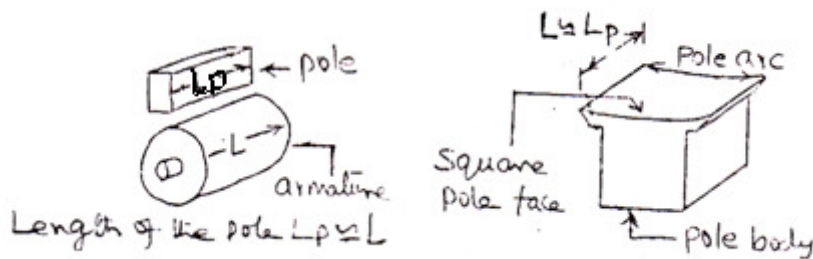 Lp
pole
L
armature
Length of the pole Lp ≌ L
L ≌ Lp
Pole arc
Square
pole face
pole body